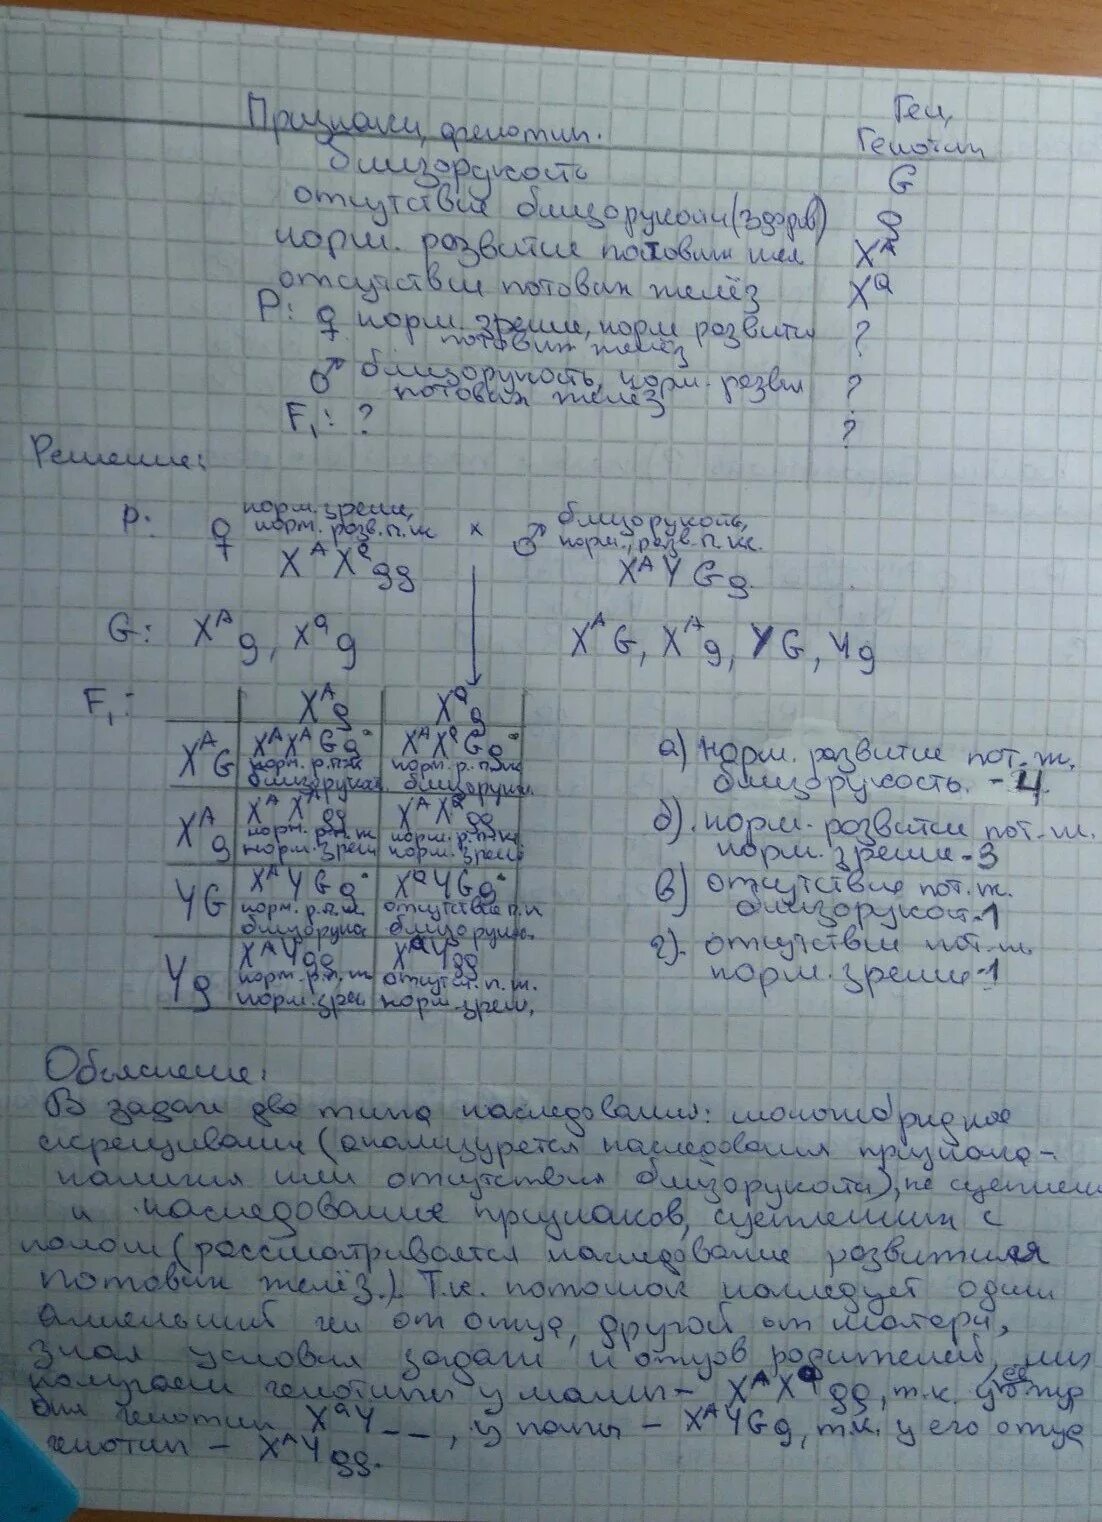 Признаки, фенотип. Ген,
Генотип
близорукость G
отсутствие близорукости (здоров) g
норм. развитие потовых жел X^A
отсутствие потовых желёз X^a
P: ♀ норм. зрение, норм развития ?
потовых желёз
♂ близорукость, норм. разви ?
потовых желёз
F₁: ? ?
Решение:
P: ♀ норм. зрение, норм. разв. п. ж x ♂ близорукость, норм. разв. п. ж.
X^A X^a gg X^A Y Gg
G: X^A g, X^a g X^A G, X^A g, YG, Yg
F₁:
X^A g X^a g
X^A G X^A X^A Gg X^A X^a Gg
норм. р. п. ж норм. р. п. ж
близорукая близорукая
X^A g X^A X^A gg X^A X^a gg
норм. р. п. ж норм. р. п. ж
норм. зрен норм. зрен
YG X^A Y Gg X^a Y Gg
норм. р. п. ж. отсутствие п. ж
близорука близорука
Yg X^A Y gg X^a Y gg
норм. р. п. ж отсутст. п. ж.
норм. зрен норм. зрен,
а) норм. развитие пот. ж.
близорукость. - 4
б). норм. развитие пот. ж.
норм. зрение - 3
в) отсутствие пот. ж.
близорукост - 1
г). отсутствие пот. ж
норм. зрение - 1
Объяснение:
В задаче два типа наследования: моногибридное
скрещивание (анализируется наследования признака -
наличия или отсутствия близорукости), не сцеплен
и наследование признаков, сцепленных с
полом (рассматривается наследование развития
потовых желёз.). Т.к. потомок наследует один
аллельный ген от отца, другой от матери,
зная условия задачи и отцов родителей, мы
получаем генотипы у мамы - X^A X^a gg, т.к. у её отца
был генотип X^a Y _ _, у папы - X^A Y Gg, т.к. у его отца
генотип - X^A Y gg.